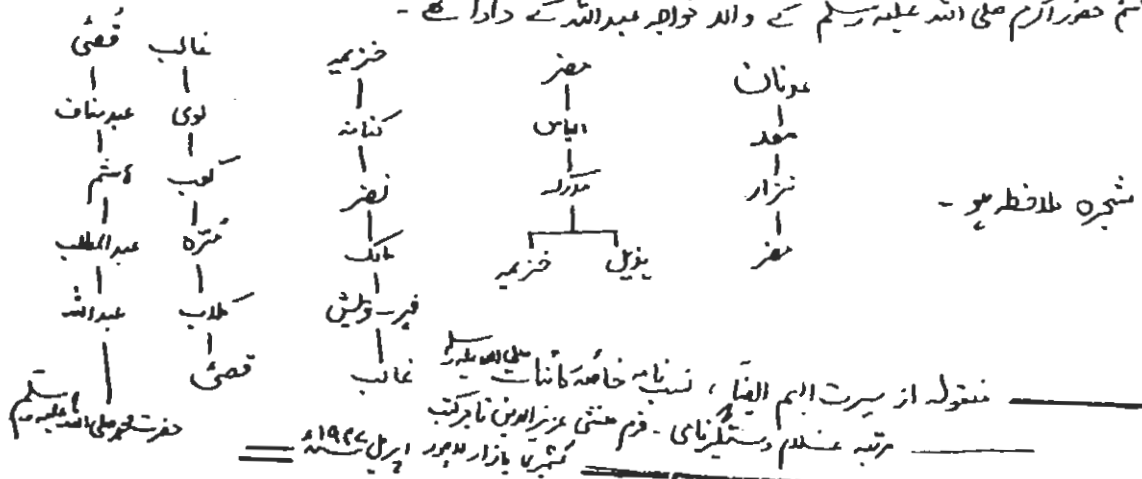 حضور اکرم صلی اللہ علیہ وسلم کے والد خواجہ عبداللہ کے دادا تھے ۔
شجرہ ملاحظہ ہو ۔
عدنان
معد
نزار
مضر
مضر
الیاس
مدرکہ
ہذیل خزیمہ
خزیمہ
کنانہ
نضر
مالک
فہر - قریش
غالب
غالب
لوی
کعب
مُرّہ
کلاب
قصیٰ
قُصیٰ
عبد مناف
ہاشم
عبدالمطلب
عبداللہ
حضرت محمد صلی اللہ علیہ وسلم
منقولہ از سیرت ، نسب نامہ کائنات صلی اللہ علیہ وسلم
مرتبہ غلام دستگیر نامی ۔ فرم منشی عزیز الدین تاجر کتب
کشمیری بازار لاہور اپریل